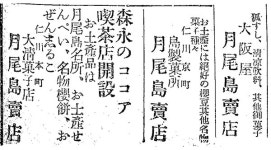 狐すし、清涼飲料、其他御菓子
大阪屋
月尾島賣店
お土産には絶好の櫻豆其他名物
菓子種々
仁川京町
島製菓所
月尾島賣店
森永のココア
喫茶店開設
お土産品は
月尾島名所、お土産せ
んべい、名物櫻餅、お
ぜんしるこ
仁川本町
大清菓子店
月尾島賣店